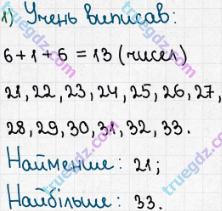 1) Учень виписав:
6+1+6 = 13 (чисел)
21, 22, 23, 24, 25, 26, 27,
28, 29, 30, 31, 32, 33.
Найменше: 21;
Найбільше: 33.
truegdz.com